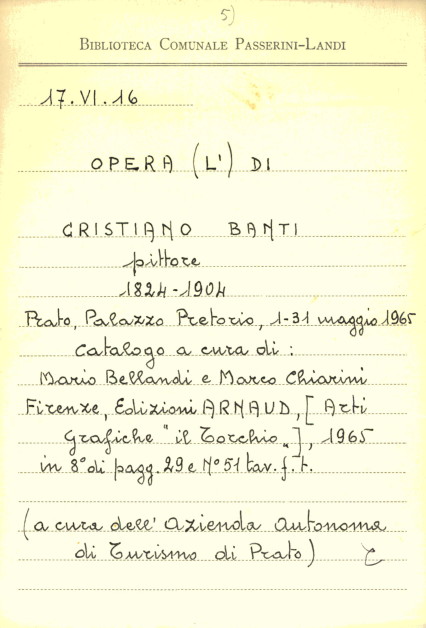 5)
BIBLIOTECA COMUNALE PASSERINI-LANDI
17.VI.16
OPERA (L') DI
CRISTIANO BANTI
pittore
1824-1904
Prato, Palazzo Pretorio, 1-31 maggio 1965
catalogo a cura di :
Mario Bellandi e Marco Chiarini
Firenze, Edizioni ARNAUD, [Arti
Grafiche "il Torchio„], 1965
in 8° di pagg. 29 e N° 51 tav. f. t.
(a cura dell' Azienda Autonoma
di Turismo di Prato)